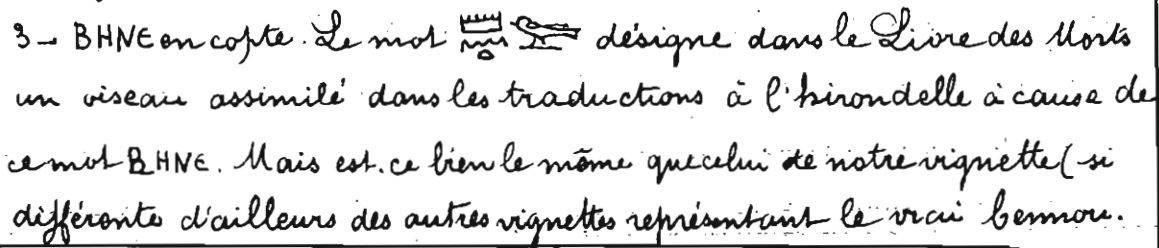 3 - BHNE en copte. Le mot 𓏠𓈖𓏏𓅨 désigne dans le Livre des Morts
un oiseau assimilé dans les traductions à l'hirondelle à cause de
ce mot BHNE. Mais est-ce bien le même que celui de notre vignette (si
différente d'ailleurs des autres vignettes représentant le vrai bennou.